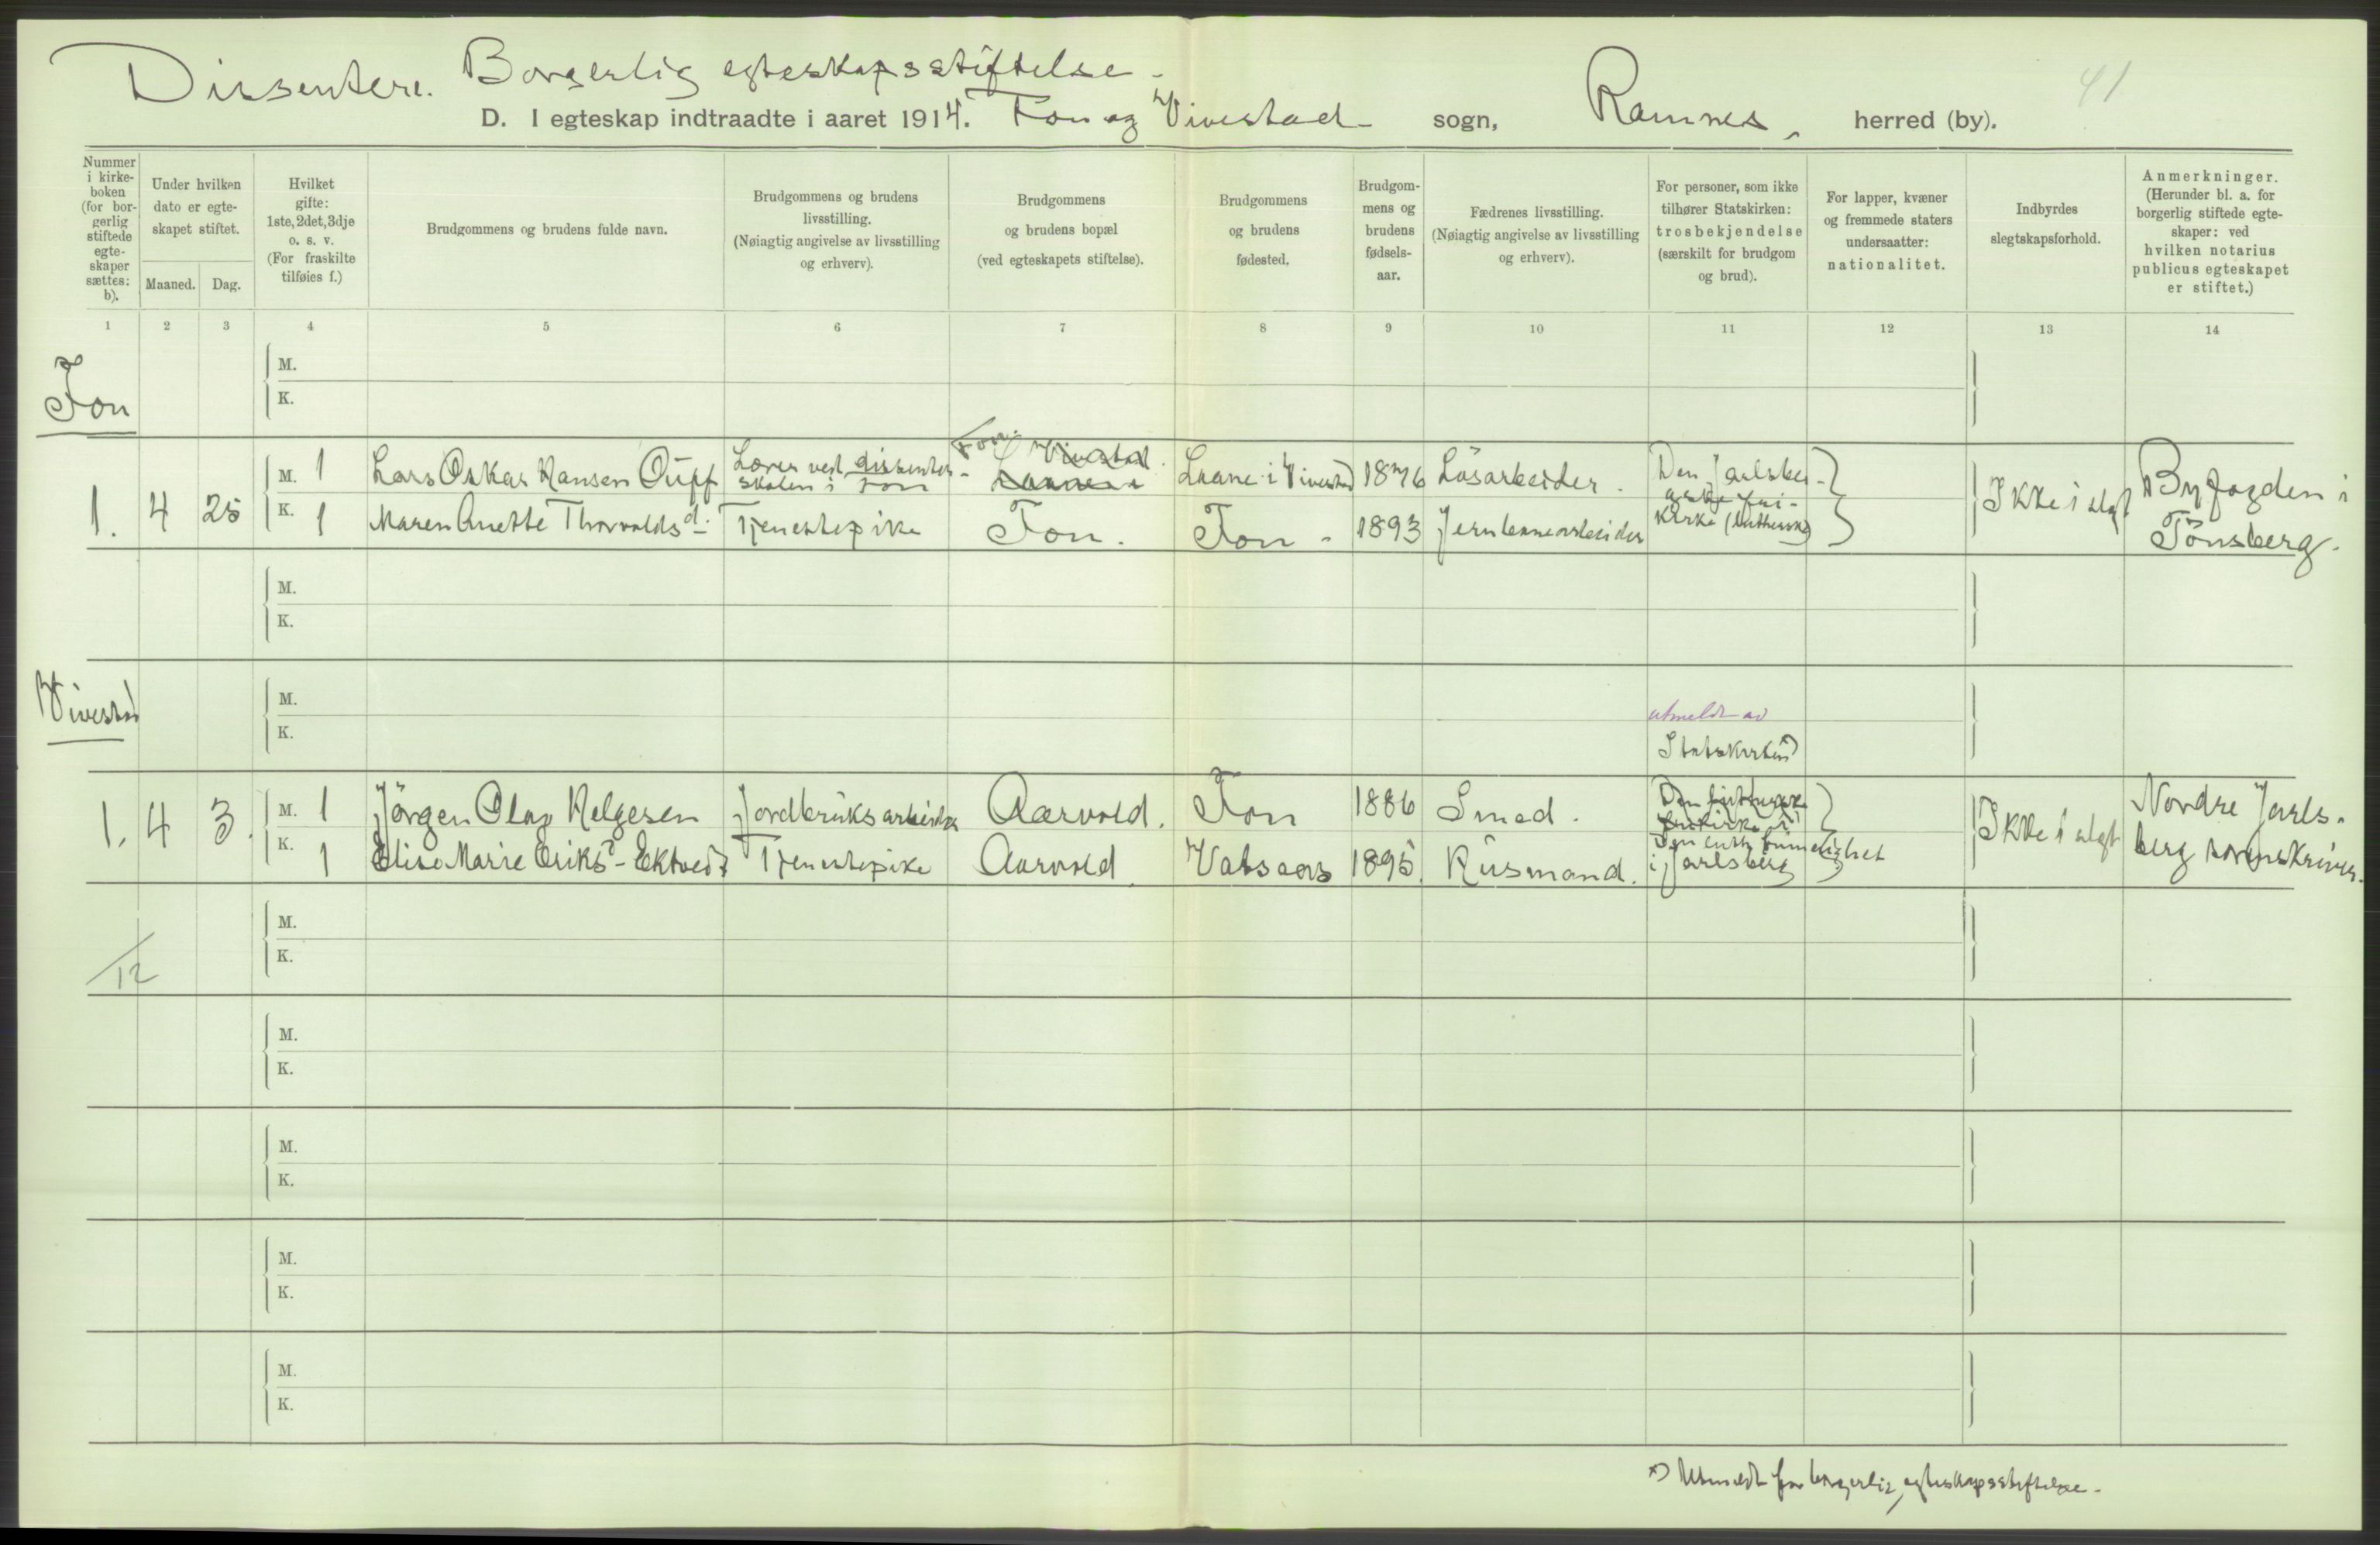 Dissentere. Borgerlig egteskapsstiftelse.
41
D. I egteskap indtraadte i aaret 1914. Fon og Vivestad sogn, Ramnes, herred (by).
Nummer i kirke-boken (for bor-gerlig stiftede egte-skaper sættes: b).
Under hvilken dato er egte-skapet stiftet.
Maaned. Dag.
Hvilket gifte: 1ste, 2det, 3dje o. s. v. (For fraskilte tilføies f.)
Brudgommens og brudens fulde navn.
Brudgommens og brudens livsstilling. (Nøiagtig angivelse av livsstilling og erhverv).
Brudgommens og brudens bopæl (ved egteskapets stiftelse).
Brudgommens og brudens fødested.
Brudgom-mens og brudens fødsels-aar.
Fædrenes livsstilling. (Nøiagtig angivelse av livsstilling og erhverv).
For personer, som ikke tilhører Statskirken: trosbekjendelse (særskilt for brudgom og brud).
For lapper, kvæner og fremmede staters undersaatter: nationalitet.
Indbyrdes slegtskapsforhold.
Anmerkninger. (Herunder bl. a. for borgerlig stiftede egte-skaper: ved hvilken notarius publicus egteskapet er stiftet.)
1 2 3 4 5 6 7 8 9 10 11 12 13 14
Fon
M.
K.
1. 4 25
M. 1 Lars Oskar Hansen Oupf Lærer ved dissenter-skolen i Fon Fon. Vivestad Laane i Vivestad 1876 Løsarbeider. Den Jarlsber-
K. 1 Maren Anette Thorvaldsd. Tjenestepike Fon. Fon - 1893 Jernbanearbeider gske fri-kirke (luthersk)
Ikke i slegt Byfogden i Tönsberg.
M.
K.
Vivestad
M.
K.
utmeldt av
Statskirken
1. 4 3.
M. 1 Jörgen Olav Helgesen Jordbruksarbeider Aarvold. Fon 1886 Smed. Den lutherske frikirke i
K. 1 Elise Marie Eriksd - Ektvedt Tjenestepike Aarvold Vatsaas 1895. Husmand. Den luth. frimenighet i Jarlsberg
Ikke i slegt Nordre Jarls-berg sorenskriver.
12
M.
K.
M.
K.
M.
K.
M.
K.
M.
K.
x) Utmeldt før borgerlig egteskapsstiftelse.